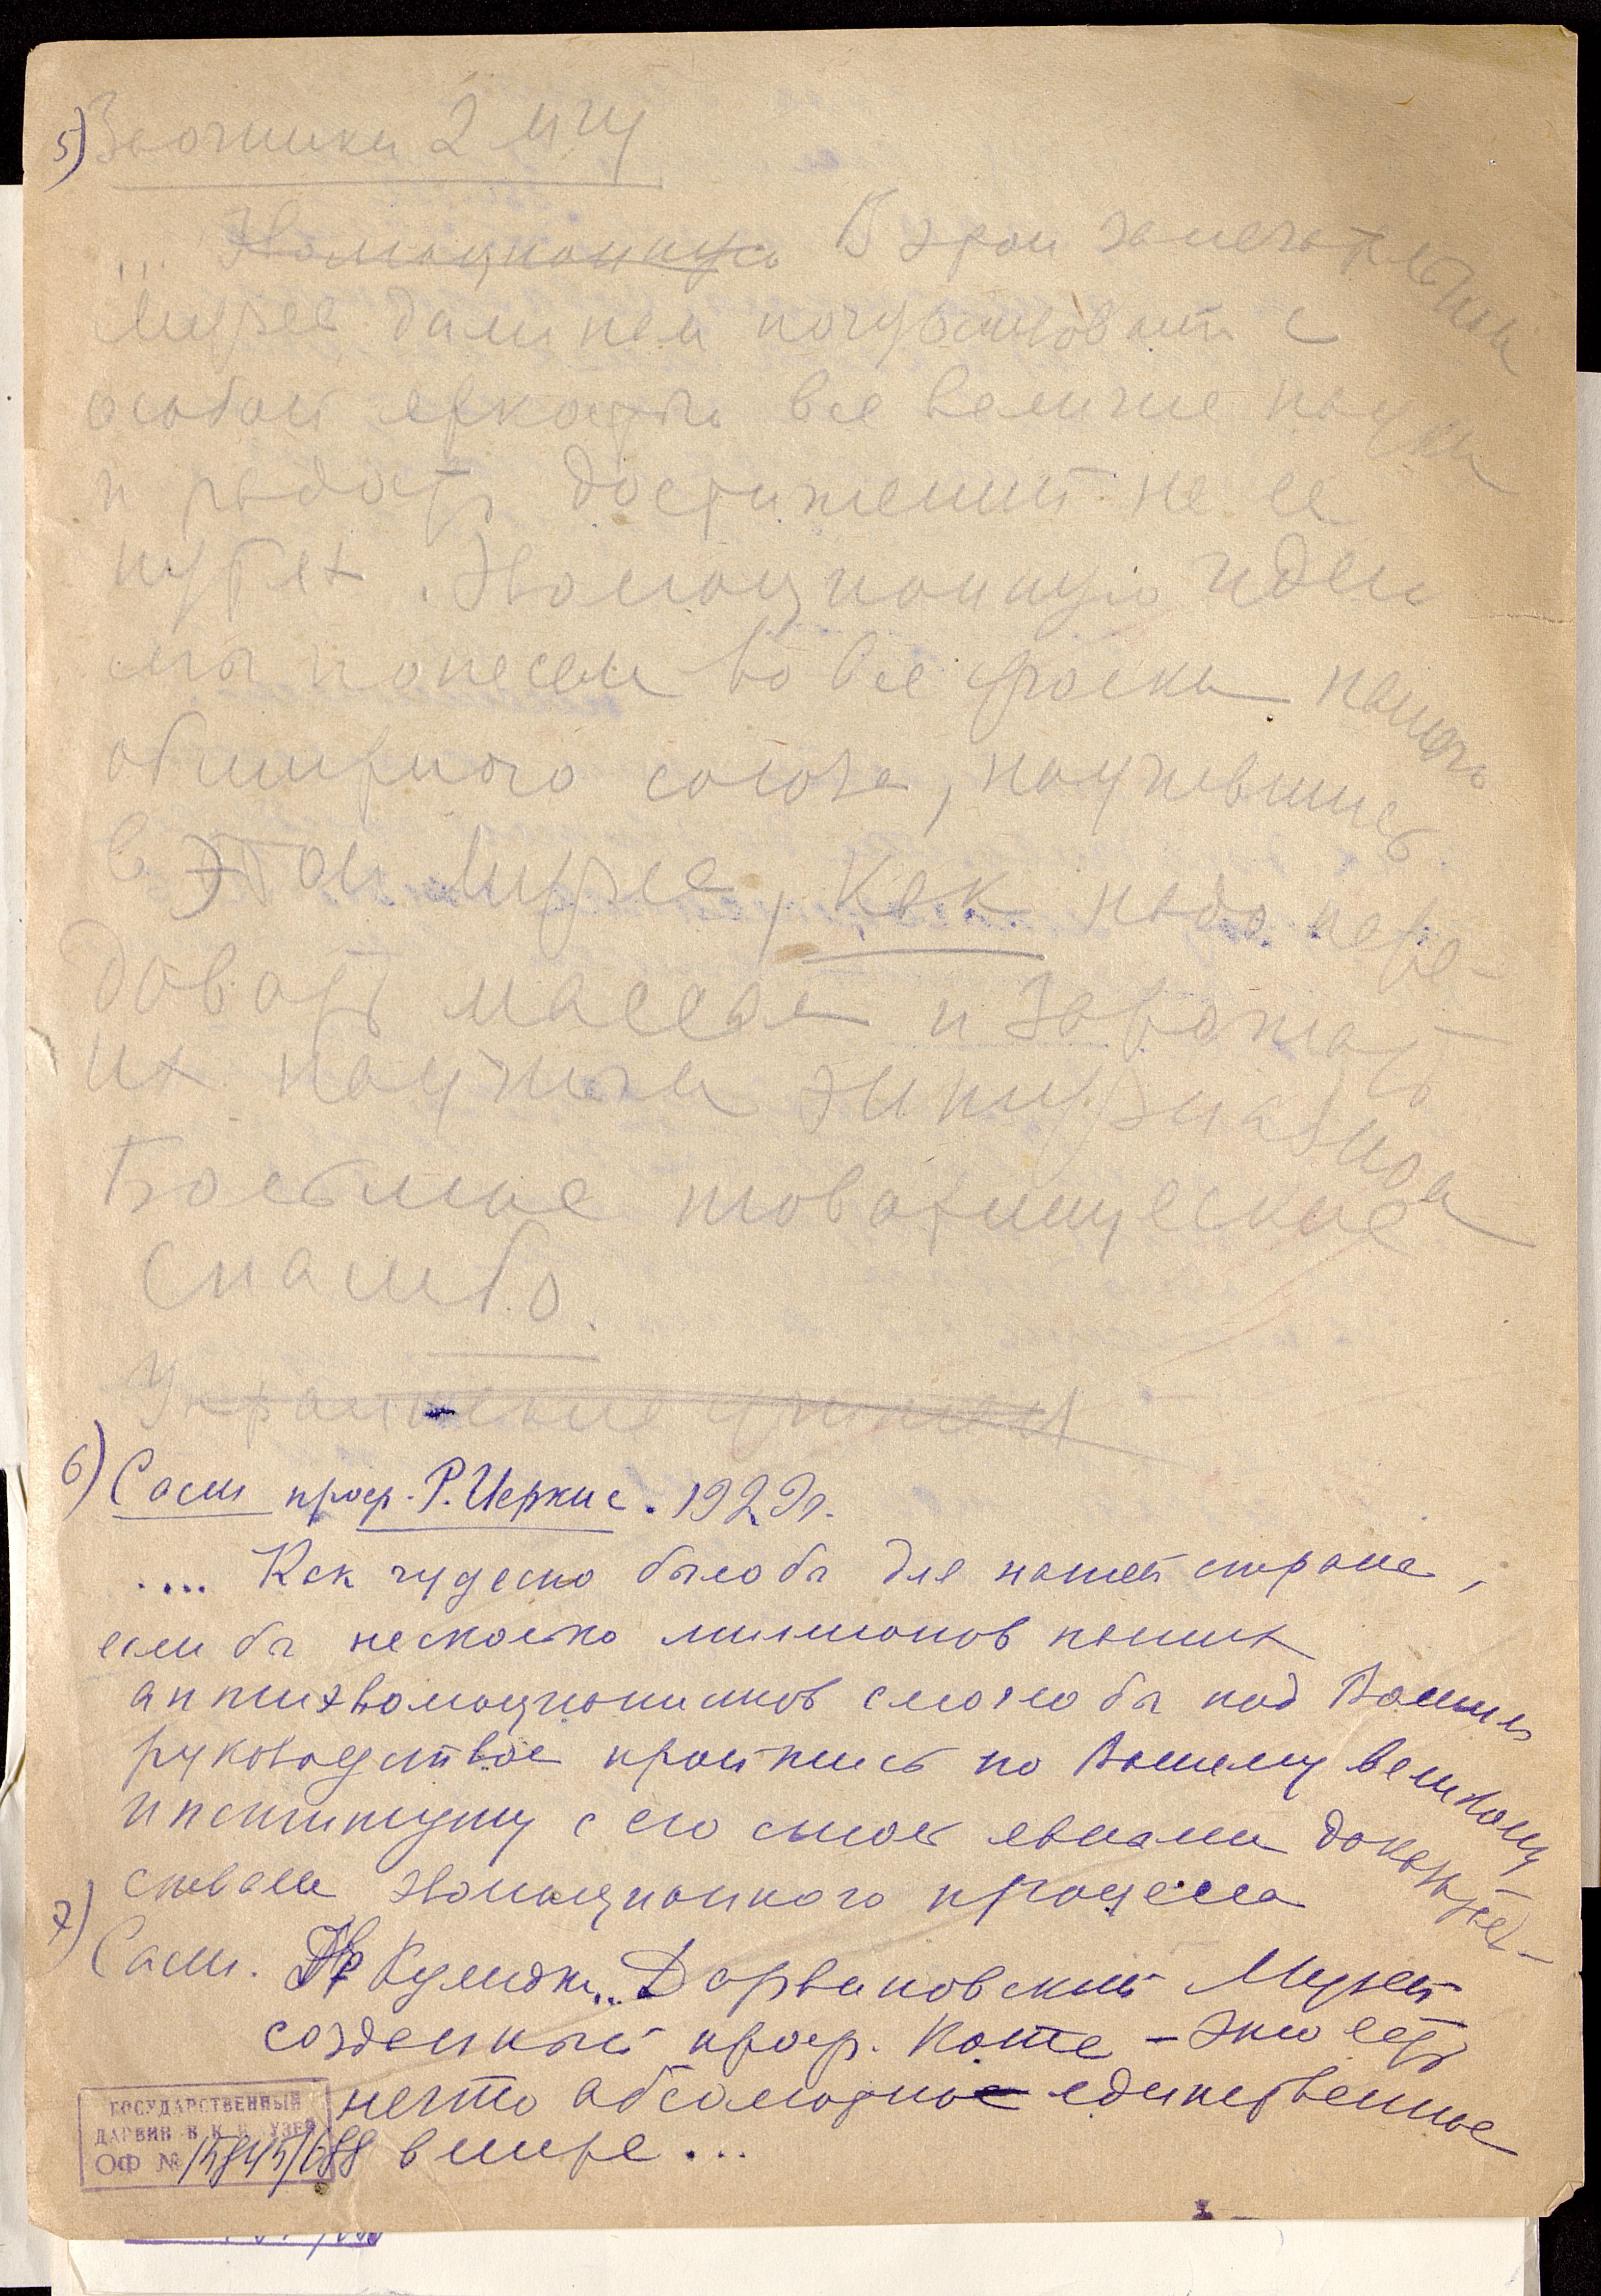 5) Заочники 2 МГУ
... Эволюционную В этом замечательном
Музее дали нам почувствовать с
особой яркостью все величие науки
и радость достижений на ее
путях. Эволюционную идею
мы понесем во все уголки нашего
обширного союза, научившись
в этом Музее, как надо пере-
давать массам и заражать
их научным энтузиазмом
Большое товарищеское
спасибо.
6) Сасш проф. Р. Иеркис. 1929г.
.... Как чудесно было бы для нашей страны,
если бы несколько миллионов наших
антиэволюционистов смогло бы под Вашим
руководством пройтись по Вашему великому
институту с его столь явными доказатель-
ствами эволюционного процесса
7) Сасш. Др Кулидж... Дарвиновский Музей
созданный проф. Котс – это есть
нечто абсолютно единственное
в мире...
ГОСУДАРСТВЕННЫЙ
ДАРВИНОВСКИЙ МУЗЕЙ
ОФ № 15845/688